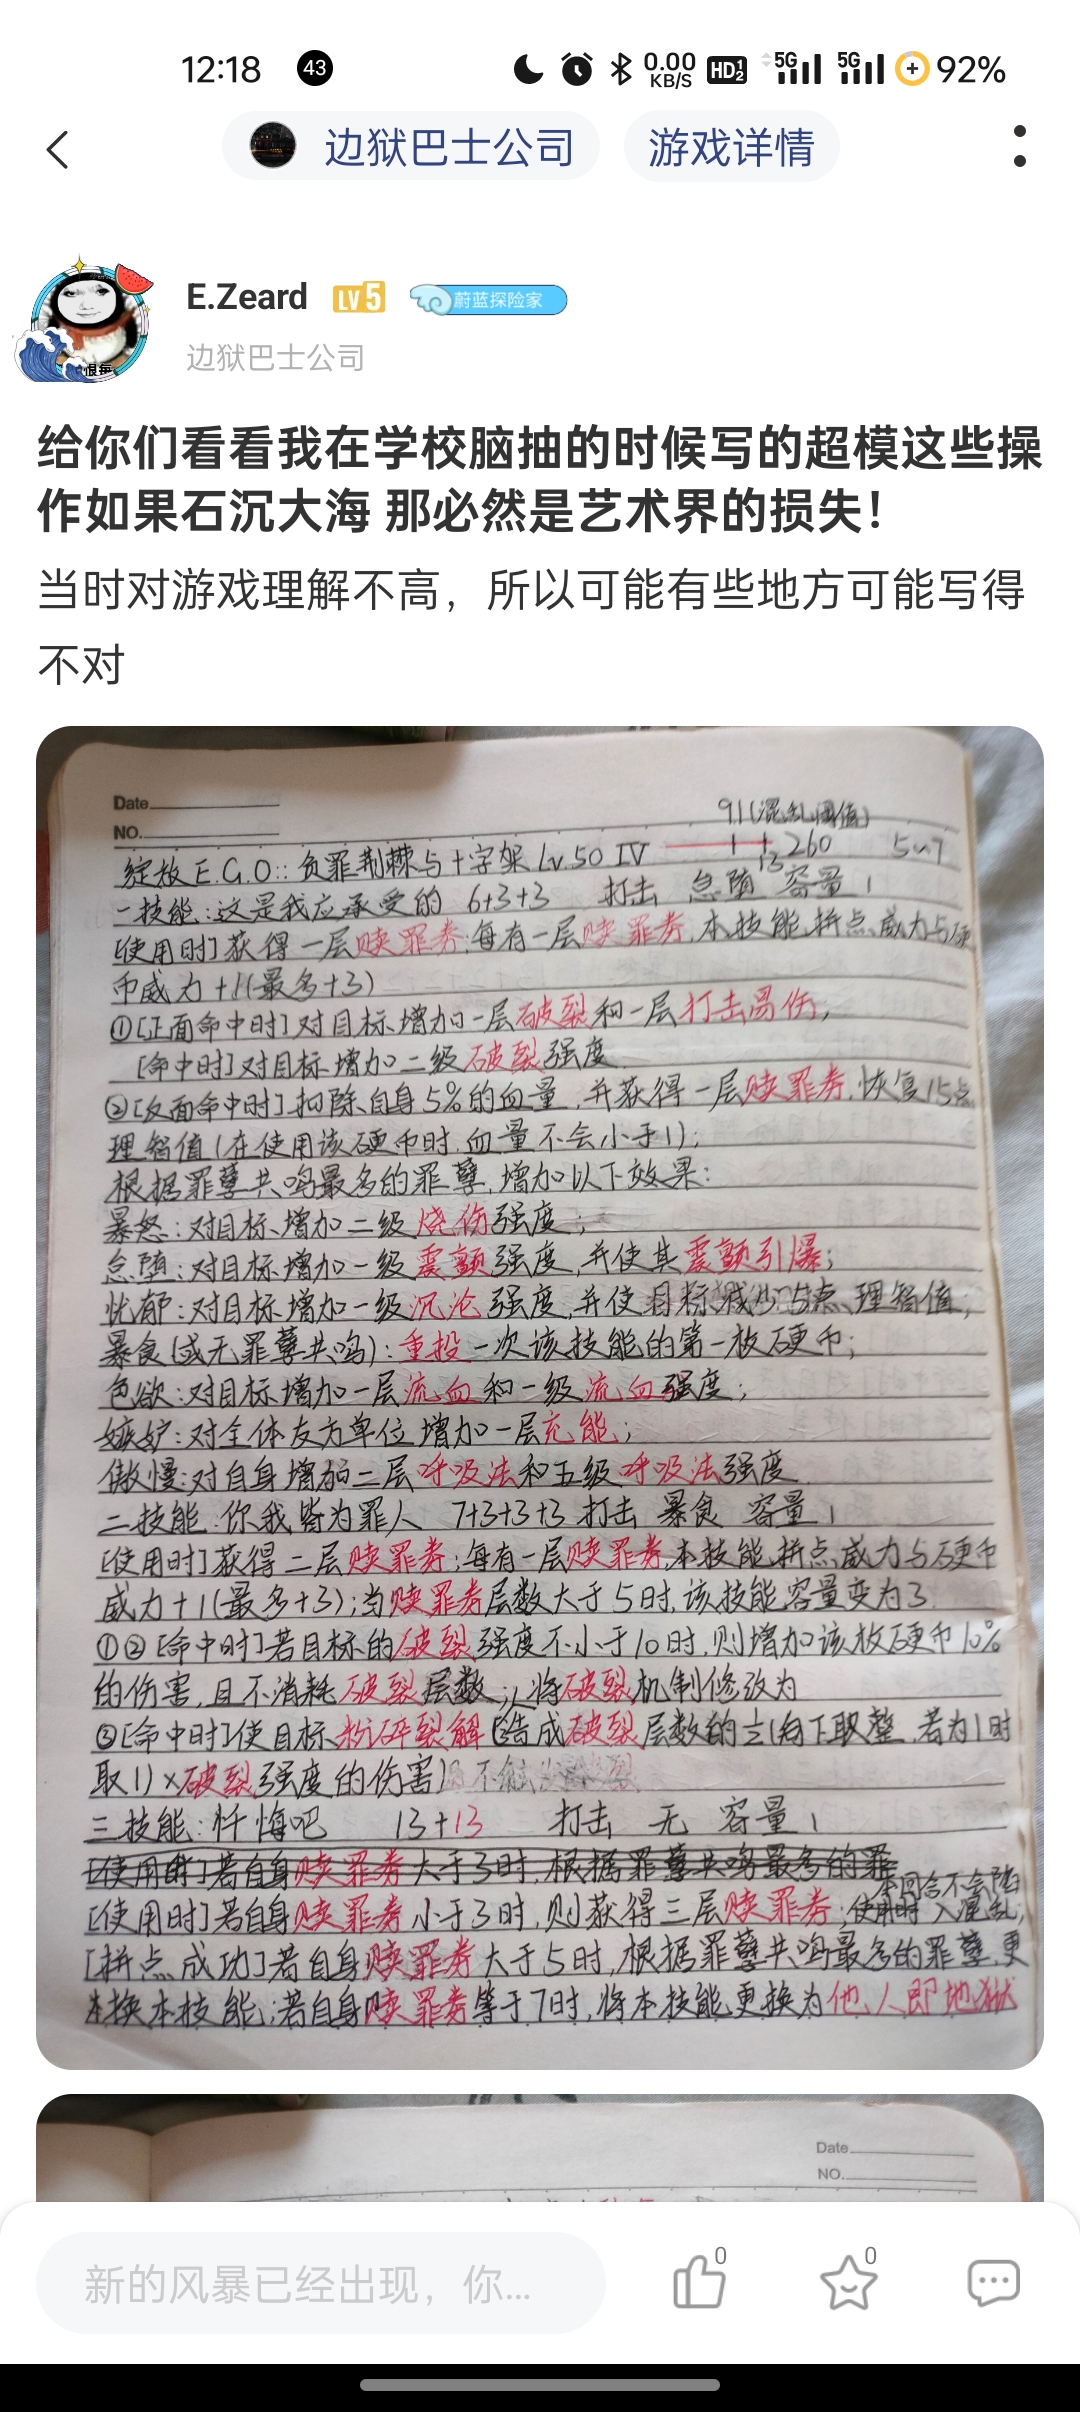 12:18 43 0.00 KB/S HD 1 2 5G 5G 92%
边狱巴士公司 游戏详情
E.Zeard LV5 蔚蓝探险家
恨每
边狱巴士公司
给你们看看我在学校脑抽的时候写的超模这些操
作如果石沉大海 那必然是艺术界的损失！
当时对游戏理解不高，所以可能有些地方可能写得
不对
Date
NO.
91(混乱阈值)
绽放E.G.O::负罪荆棘与十字架 Lv.50 IV 13 260 5~7
一技能:这是我应承受的 6+3+3 打击 怠堕 容量1
[使用时]获得一层赎罪券;每有一层赎罪券,本技能拼点威力与硬
币威力+1(最多+3)
①[正面命中时]对目标增加一层破裂和一层打击易伤,
[命中时]对目标增加二级破裂强度
②[反面命中时]扣除自身5%的血量,并获得一层赎罪券,恢复15点
理智值(在使用该硬币时,血量不会小于1);
根据罪孽共鸣最多的罪孽,增加以下效果:
暴怒:对目标增加二级烧伤强度;
怠堕:对目标增加一级震颤强度,并使其震颤引爆;
忧郁:对目标增加一级沉沦强度,并使目标减少5点理智值;
暴食(或无罪孽共鸣):重投一次该技能的第一枚硬币;
色欲:对目标增加一层流血和一级流血强度;
嫉妒:对全体友方单位增加一层充能;
傲慢:对自身增加二层呼吸法和五级呼吸法强度
二技能:你我皆为罪人 7+3+3+3 打击 暴食 容量1
[使用时]获得二层赎罪券;每有一层赎罪券,本技能拼点威力与硬币
威力+1(最多+3);当赎罪券层数大于5时,该技能容量变为3
①②[命中时]若目标的破裂强度不小于10时,则增加该枚硬币10%
的伤害,且不消耗破裂层数;将破裂机制修改为
③[命中时]使目标粉碎裂解[造成破裂层数的(向下取整,若为1时
取1)×破裂强度的伤害] 不能
三技能:忏悔吧 13+13 打击 无 容量1
[使用时]若自身赎罪券大于3时,根据罪孽共鸣最多的罪
本回合不会陷
[使用时]若自身赎罪券小于3时,则获得三层赎罪券;使用时入混乱;
[拼点成功]若自身赎罪券大于5时,根据罪孽共鸣最多的罪孽,更
换本技能;若自身赎罪券等于7时,将本技能更换为他人即地狱
Date
NO.
新的风暴已经出现，你... 0 0